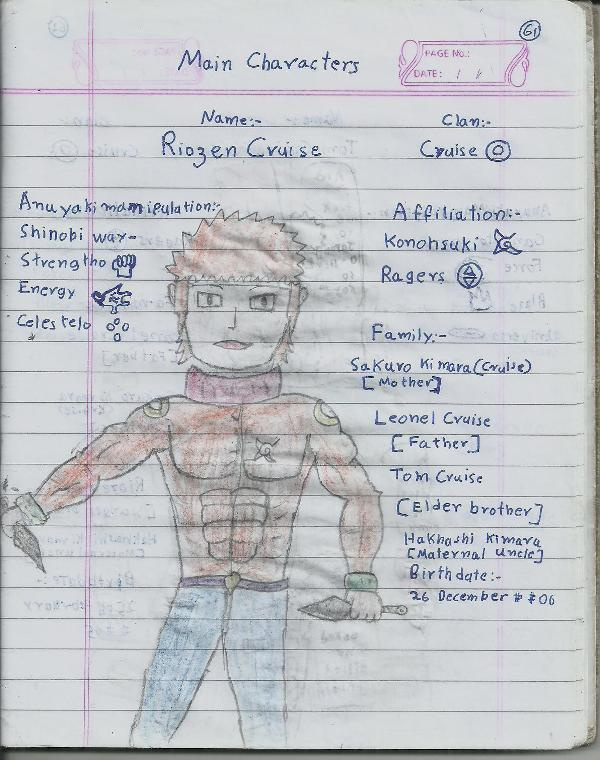 61
PAGE NO.:
DATE: / /
Main Characters
Name:-
Riozen Cruise
Clan:-
Cruise
Anuyaki manipulation:-
Shinobi way-
Strengtho
Energy
Celestelo
Affiliation:-
Konohsuki
Ragers
Family:-
Sakuro Kimara (Cruise)
[Mother]
Leonel Cruise
[Father]
Tom Cruise
[Elder brother]
Hakhashi Kimara
[Maternal uncle]
Birthdate:-
26 December